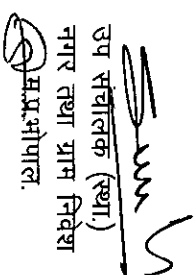 उप संचालक (स्था.)
नगर तथा ग्राम निवेश
म.प्र.भोपाल.